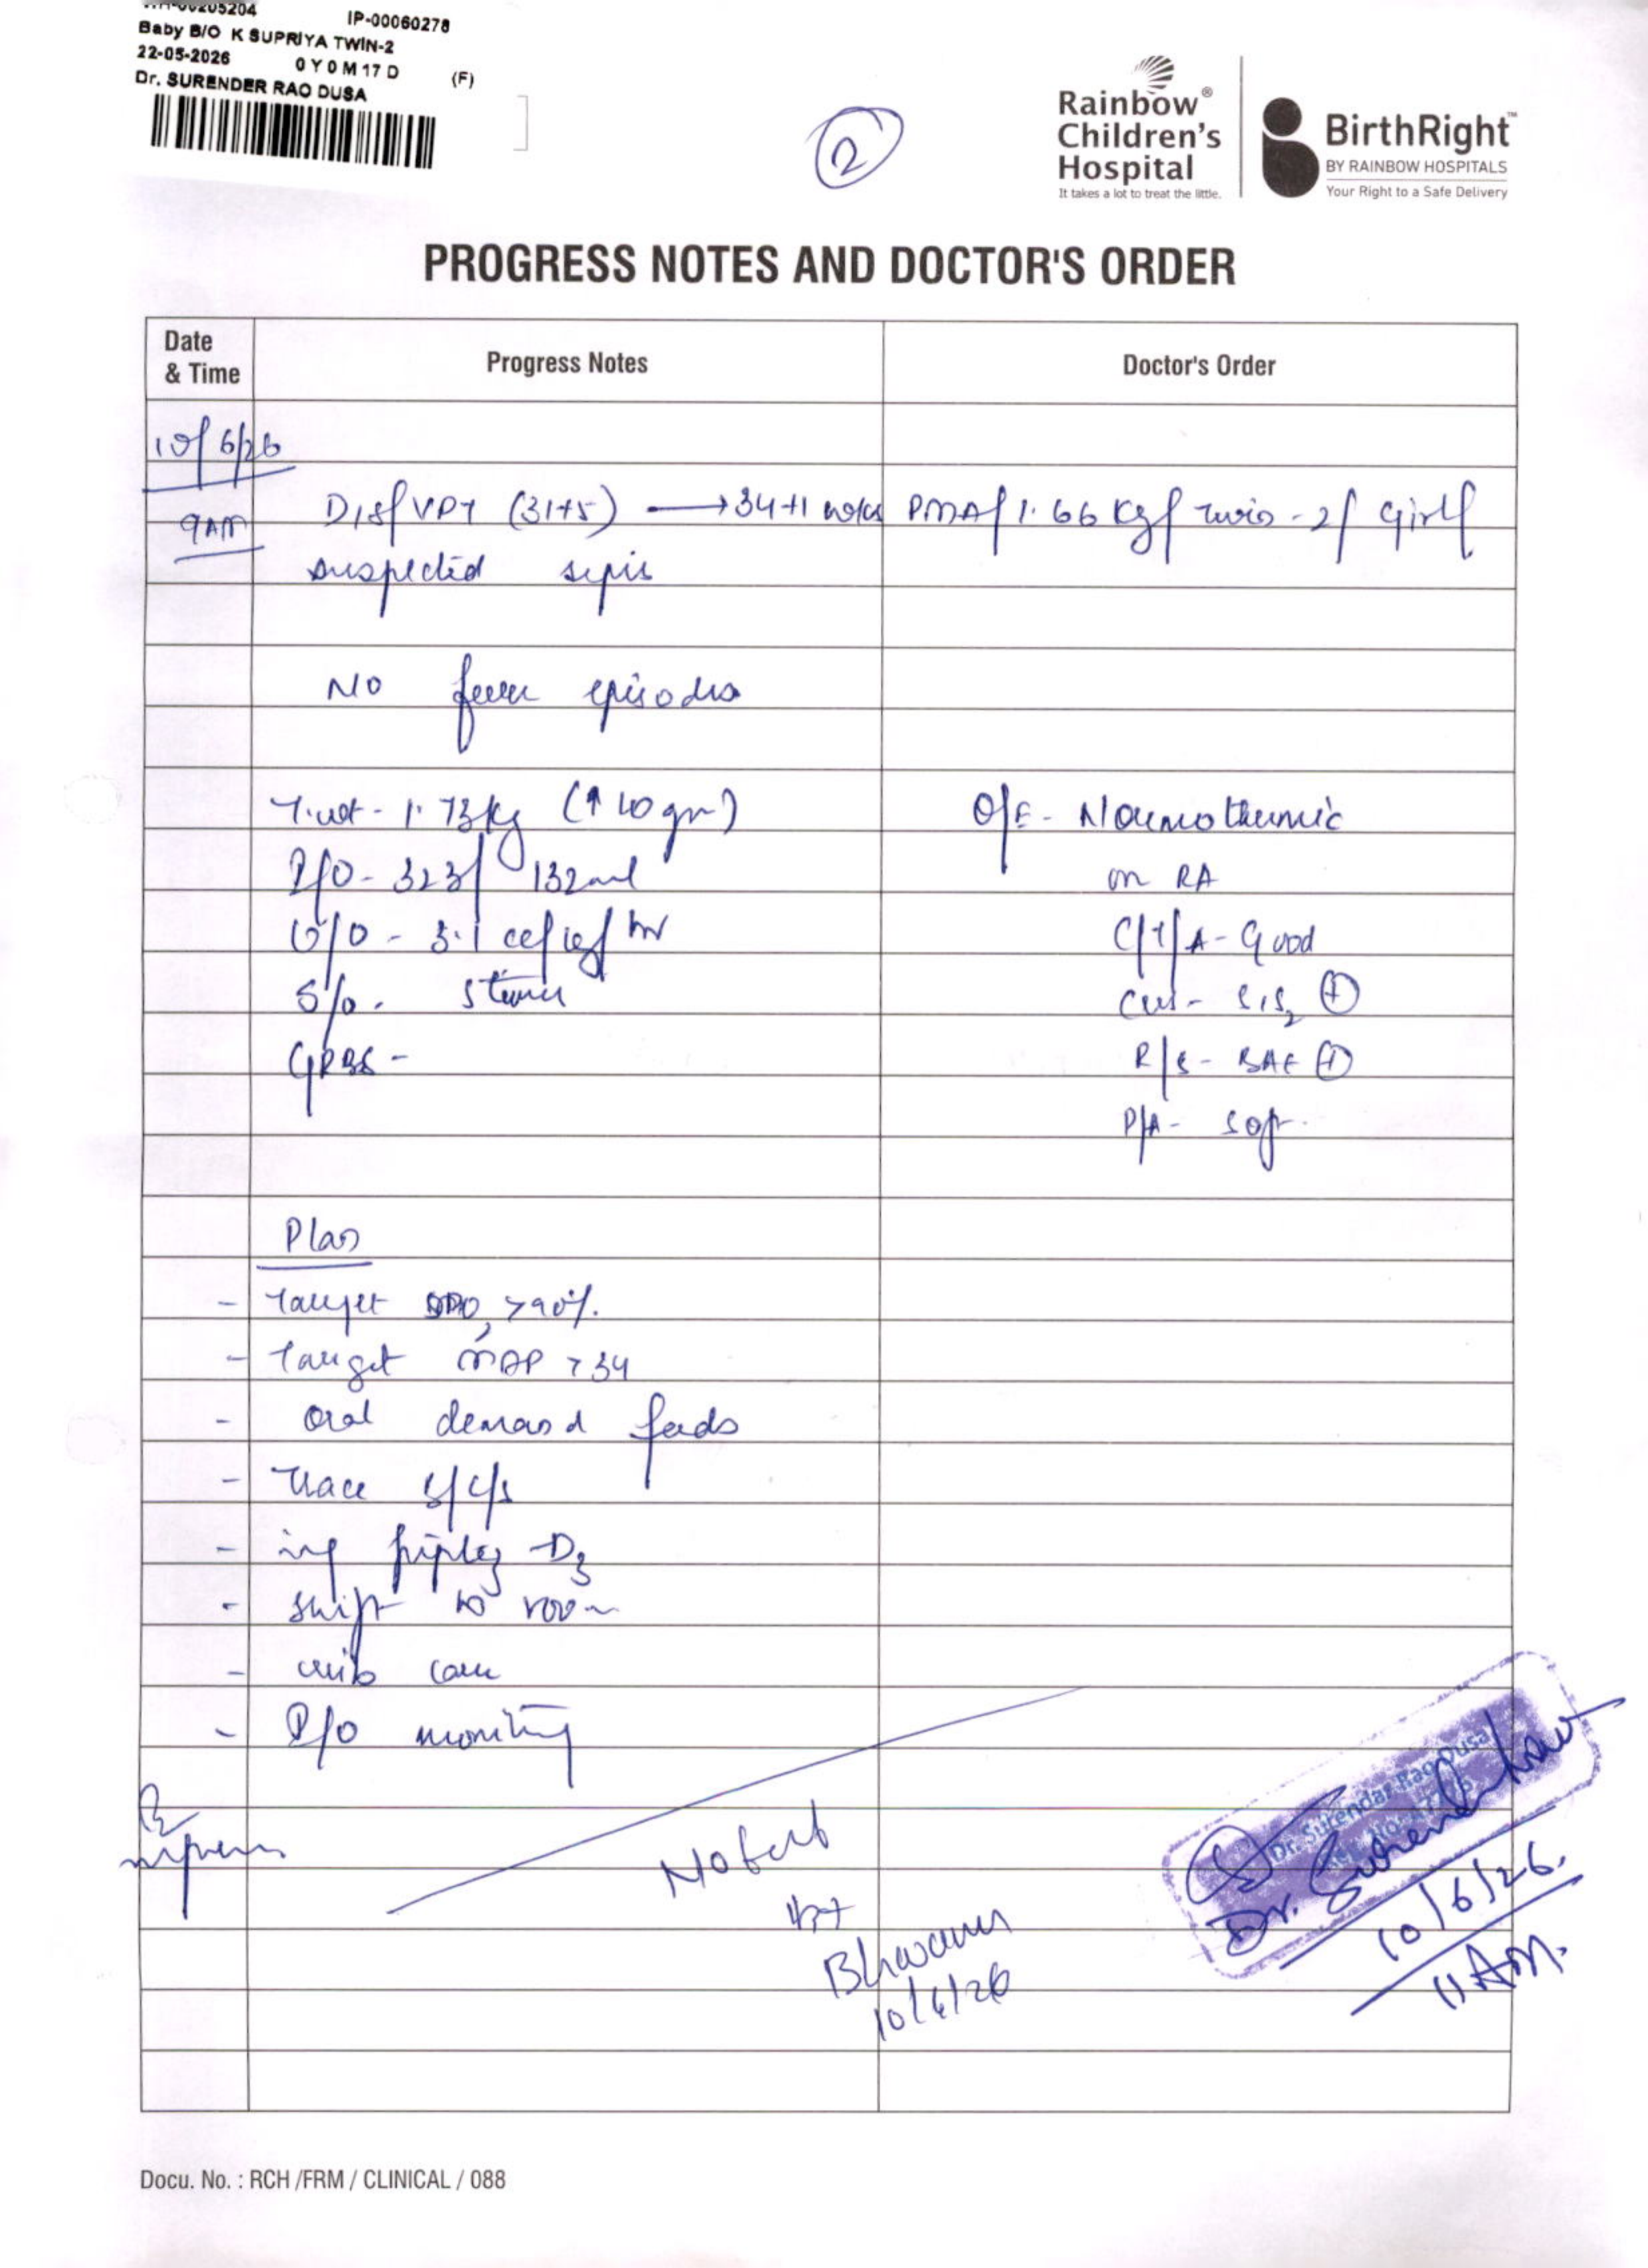 IP-00060278
Baby B/O K SUPRIYA TWIN-2
22-05-2026 0 Y 0 M 17 D (F)
Dr. SURENDER RAO DUSA
2
Rainbow®
Children's
Hospital
It takes a lot to treat the little.
BirthRight™
BY RAINBOW HOSPITALS
Your Right to a Safe Delivery
PROGRESS NOTES AND DOCTOR'S ORDER
Date & Time Progress Notes Doctor's Order
10/6/26
9AM D18/ VPT (31+5) → 34+1 weeks PMA/ 1.66 Kg/ Twin-2/ Girl/
suspected sepsis
No fever episodes
T.wt - 1.73kg (↑ 10 gm) O/E - Normothermic
I/O - 323/ 132ml on RA
U/O - 3.1 cc/kg/hr C/T/A - Good
S/O - 5 times CVS - S1S2 ⊕
GRBS - R/S - BAE ⊕
P/A - soft
Plan
- Target SPO2 >90%
- Target MAP >34
- Oral demand feeds
- Trace B/C/S
- inj piptaz -D3
- Shift to room
- crib care
- I/O monitoring
Noted
Bhavani
10/6/26
Dr. Surendar Rao Dusa
Dr. Surender Rao
10/6/26.
11 AM.
Docu. No. : RCH /FRM / CLINICAL / 088